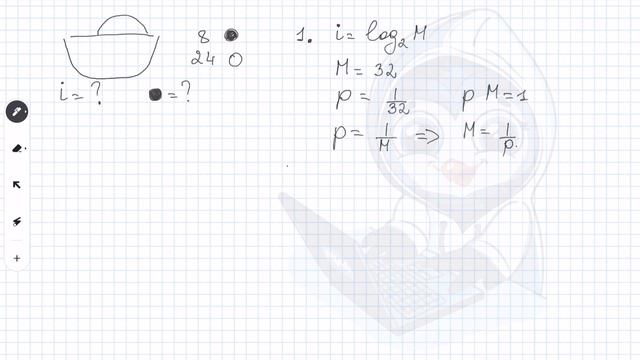 8 ●
24 ○
i = ? ● = ?
1. i = log₂ M
M = 32
p = 1/32 p M = 1
p = 1/M => M = 1/p.